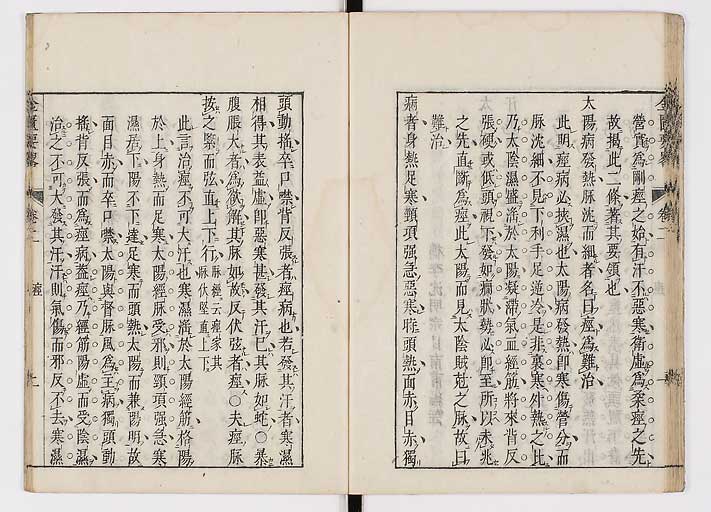 營實爲剛痙之始有汗不惡寒衛虛爲柔痙之先
故揭此二條著其要領也
太陽病發熱脉沈而細者名曰痙爲難治
此明痙病必挾濕也太陽病發熱卽寒傷營分而
脉沈細不見下利手足逆冷是非裏寒外熱之比
乃太陰濕盛滯於太陽凝滯氣血經筋將來背反
張硬或低頭視下發如癎狀勢必卽至所以未兆
之先直斷爲痙此太陽而見太陰賊尅之脉故曰
難治
病者身熱足寒頸項强急惡寒時頭熱面赤目赤獨
頭動搖卒口噤背反張者痙病也若發其汗者寒濕
相得其表益虛卽惡寒甚發其汗已其脉如蛇○暴
腹脹大者爲欲解其脉如故反伏弦者痙○夫痙脉
按之緊而弦直上下行脉經云痙家其脉伏堅直上下
此言治痙不可大汗也寒濕滯於太陽經筋格陽
於上身熱而足寒太陽經脉受邪則頸項强急寒
濕居下陽不下達足寒而頭熱太陽而兼陽明故
面目赤而卒口噤太陽與督脉風爲主病獨頭動
搖背反張而爲痙病蓋痙乃經筋陽虛而受陰濕
治之不可大發其汗汗則氣傷而邪反不去寒濕
金匱要畧
卷二
痙